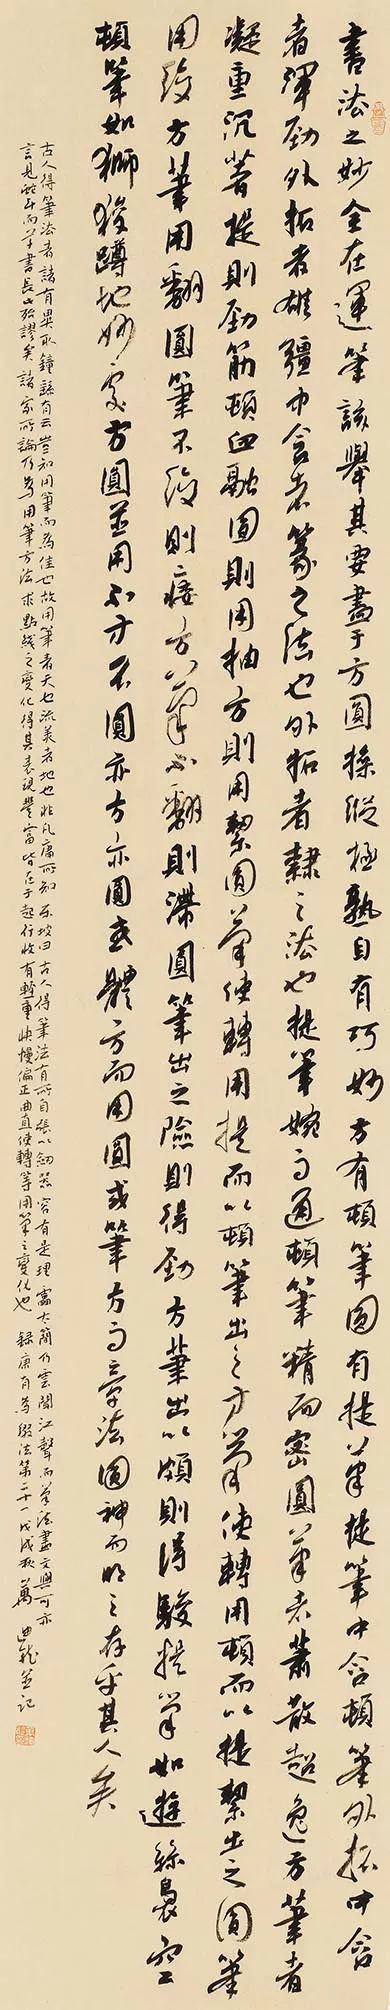 書法之妙全在運筆該舉其要盡于方圓操縱極熟自有巧妙方有頓筆圓有提筆提筆中含頓筆外拓中含
者渾勁外拓者雄彊中含者篆之法也外拓者隸之法也提筆婉而通頓筆精而密圓筆者蕭散超逸方筆者
凝重沉著提則勁筋頓血融圓則用抽方則用絜圓筆使轉用提而以頓筆出之方筆使轉用頓而以提絜出之圓筆
用絞方筆用翻圓筆不絞則痿方筆不翻則滯圓筆出之險則得勁方筆出以頗則得駿提筆如遊絲裊空
頓筆如獅狻蹲地妙處方圓並用不方不圓亦方亦圓或體方而用圓或筆方而章法圓神而明之存乎其人矣
古人得筆法者諸有異取鐘繇有云豈知用筆而為佳也故用筆者天也流美者地也非凡庸所知東坡曰古人得筆法有所自張以劍器容有是理雷太簡乃雲聞江聲而筆法盡文與可亦
言見蛇斗而草書長此殆謬矣諸家所論乃為用筆方法求點綫之變化得其表現豐富皆在于起行收有輕重快慢偏正曲直使轉等用筆之變化也 錄康有為綴法第二十一戊戌秋萬
迪龍并記